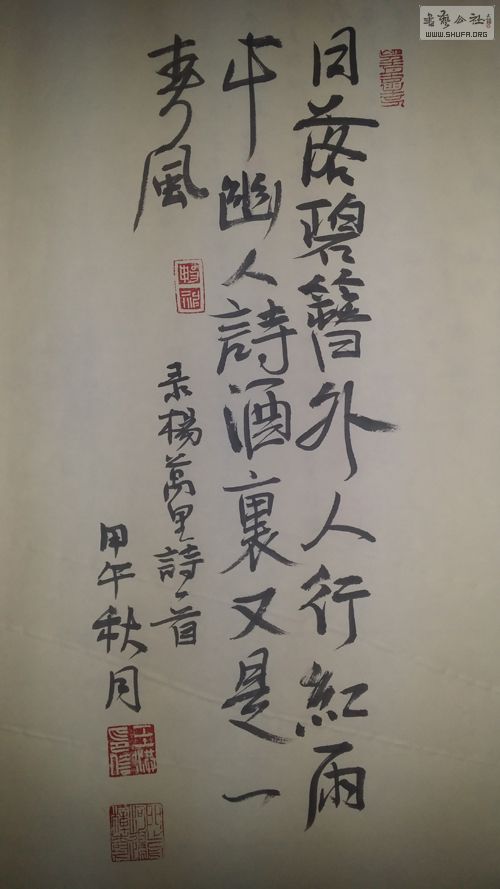 日落碧簪外人行紅雨
中幽人詩酒裏又是一
春風
录楊萬里詩一首
甲午秋月
書藝公社
WWW.SHUFA.ORG